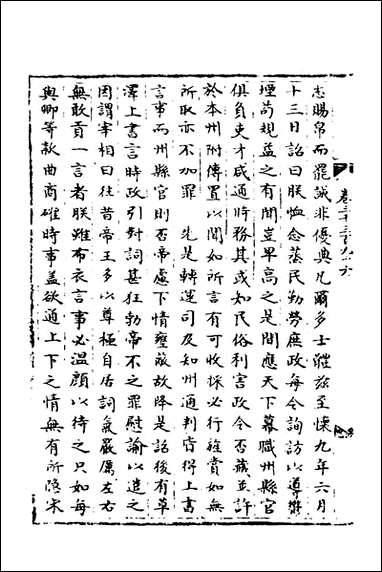 志賜帛而罷誠非優典凡爾多士體茲至懷九年六月
十三日詔曰朕恤念蒸民勤勞庶政每令詢訪以導
堙苟規益之有聞豈卑高之是間應天下幕職州縣官
俱負吏才咸通時務其或知民俗利害政令否臧並許
於本州附傳置以聞如所言有可收採必行旌賞如無
所取亦不加罪 先是轉運司及知州通判皆得上書
言事而州縣官則否帝慮下情壅蔽故降是詔後有草
澤上書言時政引對詞甚狂勃帝不之罪慰諭以遣之
因謂宰相曰往昔帝王多以尊極自居詞氣嚴厲左右
無敢貢一言者朕雖布衣言事必溫顔以待之只如每
與卿等款曲商確時事蓋欲通上下之情無有所隱宋